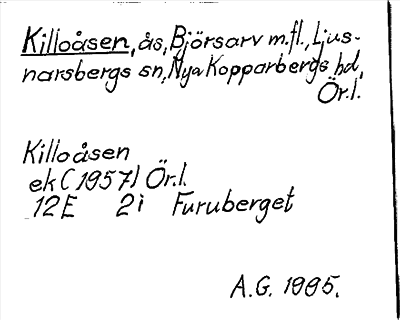 Killoåsen, ås, Björsarv m.fl., Ljus-
narsbergs sn, Nya Kopparbergs hd,
Ör.l.
Killoåsen
ek (1957) Ör.l.
12E 2i Furuberget
A.G. 1995.